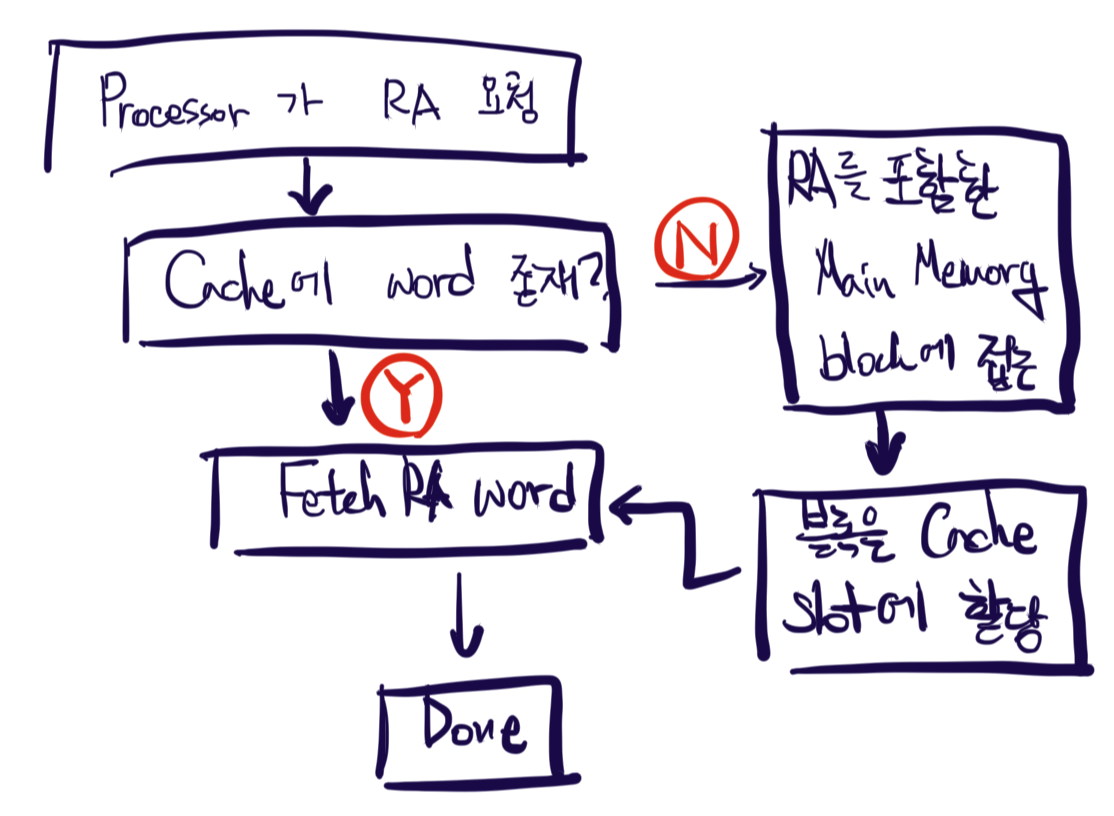 Processor 가 RA 요청
Cache에 word 존재?
N
RA를 포함한
Main Memory
block에 접근
Y
Fetch RA word
블록을 Cache
slot에 할당
Done